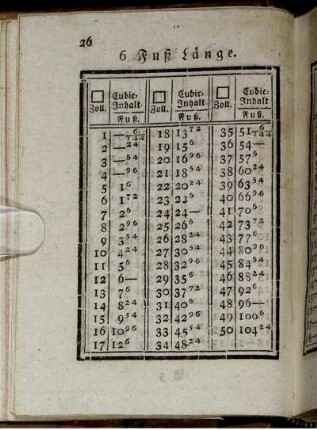 26
6 Fuß Länge.
Zoll. Cubic-Inhalt Zoll. Cubic-Inhalt Zoll. Cubic-Inhalt
Fuß. Fuß. Fuß.
1 — 6/144 18 13 72 35 51 6/144
2 — 24 19 15 6 36 54 —
3 — 54 20 16 96 37 57 6
4 — 96 21 18 54 38 60 24
5 1 6 22 20 24 39 63 54
6 1 72 23 22 6 40 66 96
7 2 6 24 24 — 41 70 6
8 2 96 25 26 6 42 73 72
9 3 54 26 28 24 43 77 6
10 4 24 27 30 54 44 80 96
11 5 6 28 32 96 45 84 54
12 6 — 29 35 6 46 88 24
13 7 6 30 37 72 47 92 6
14 8 24 31 40 6 48 96 —
15 9 54 32 42 96 49 100 6
16 10 96 33 45 54 50 104 24
17 12 6 34 48 24